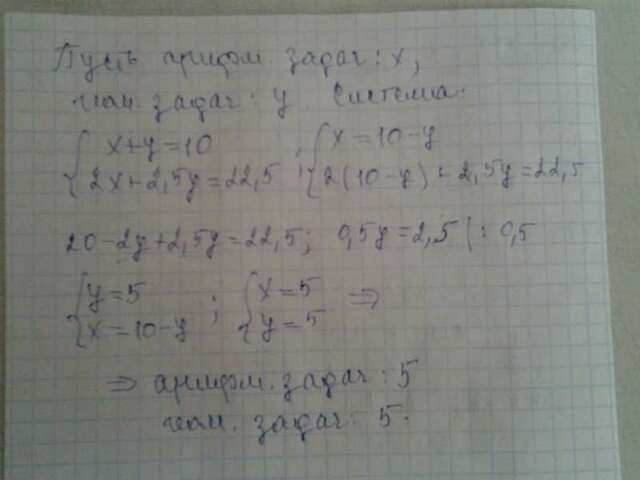 Пусть арифм. задач: x,
геом. задач: y. Система:
{ x+y=10 ; { x=10-y
{ 2x+2,5y=22,5 { 2(10-y)+2,5y=22,5
20-2y+2,5y=22,5; 0,5y=2,5 |: 0,5
{ y=5 ; { x=5 ⇒
{ x=10-y { y=5
⇒ арифм. задач: 5
геом. задач: 5.